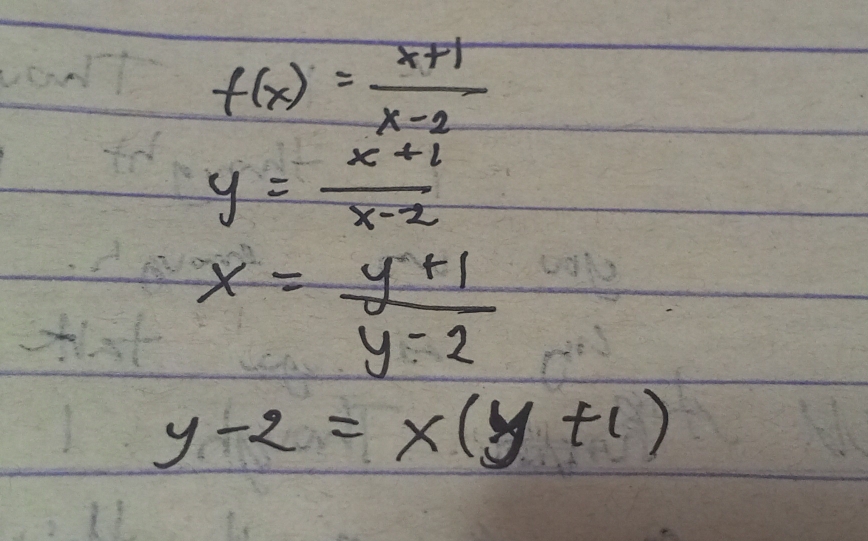 f(x) = x+1 / x-2
y = x+1 / x-2
x = y+1 / y-2
y-2 = x(y+1)